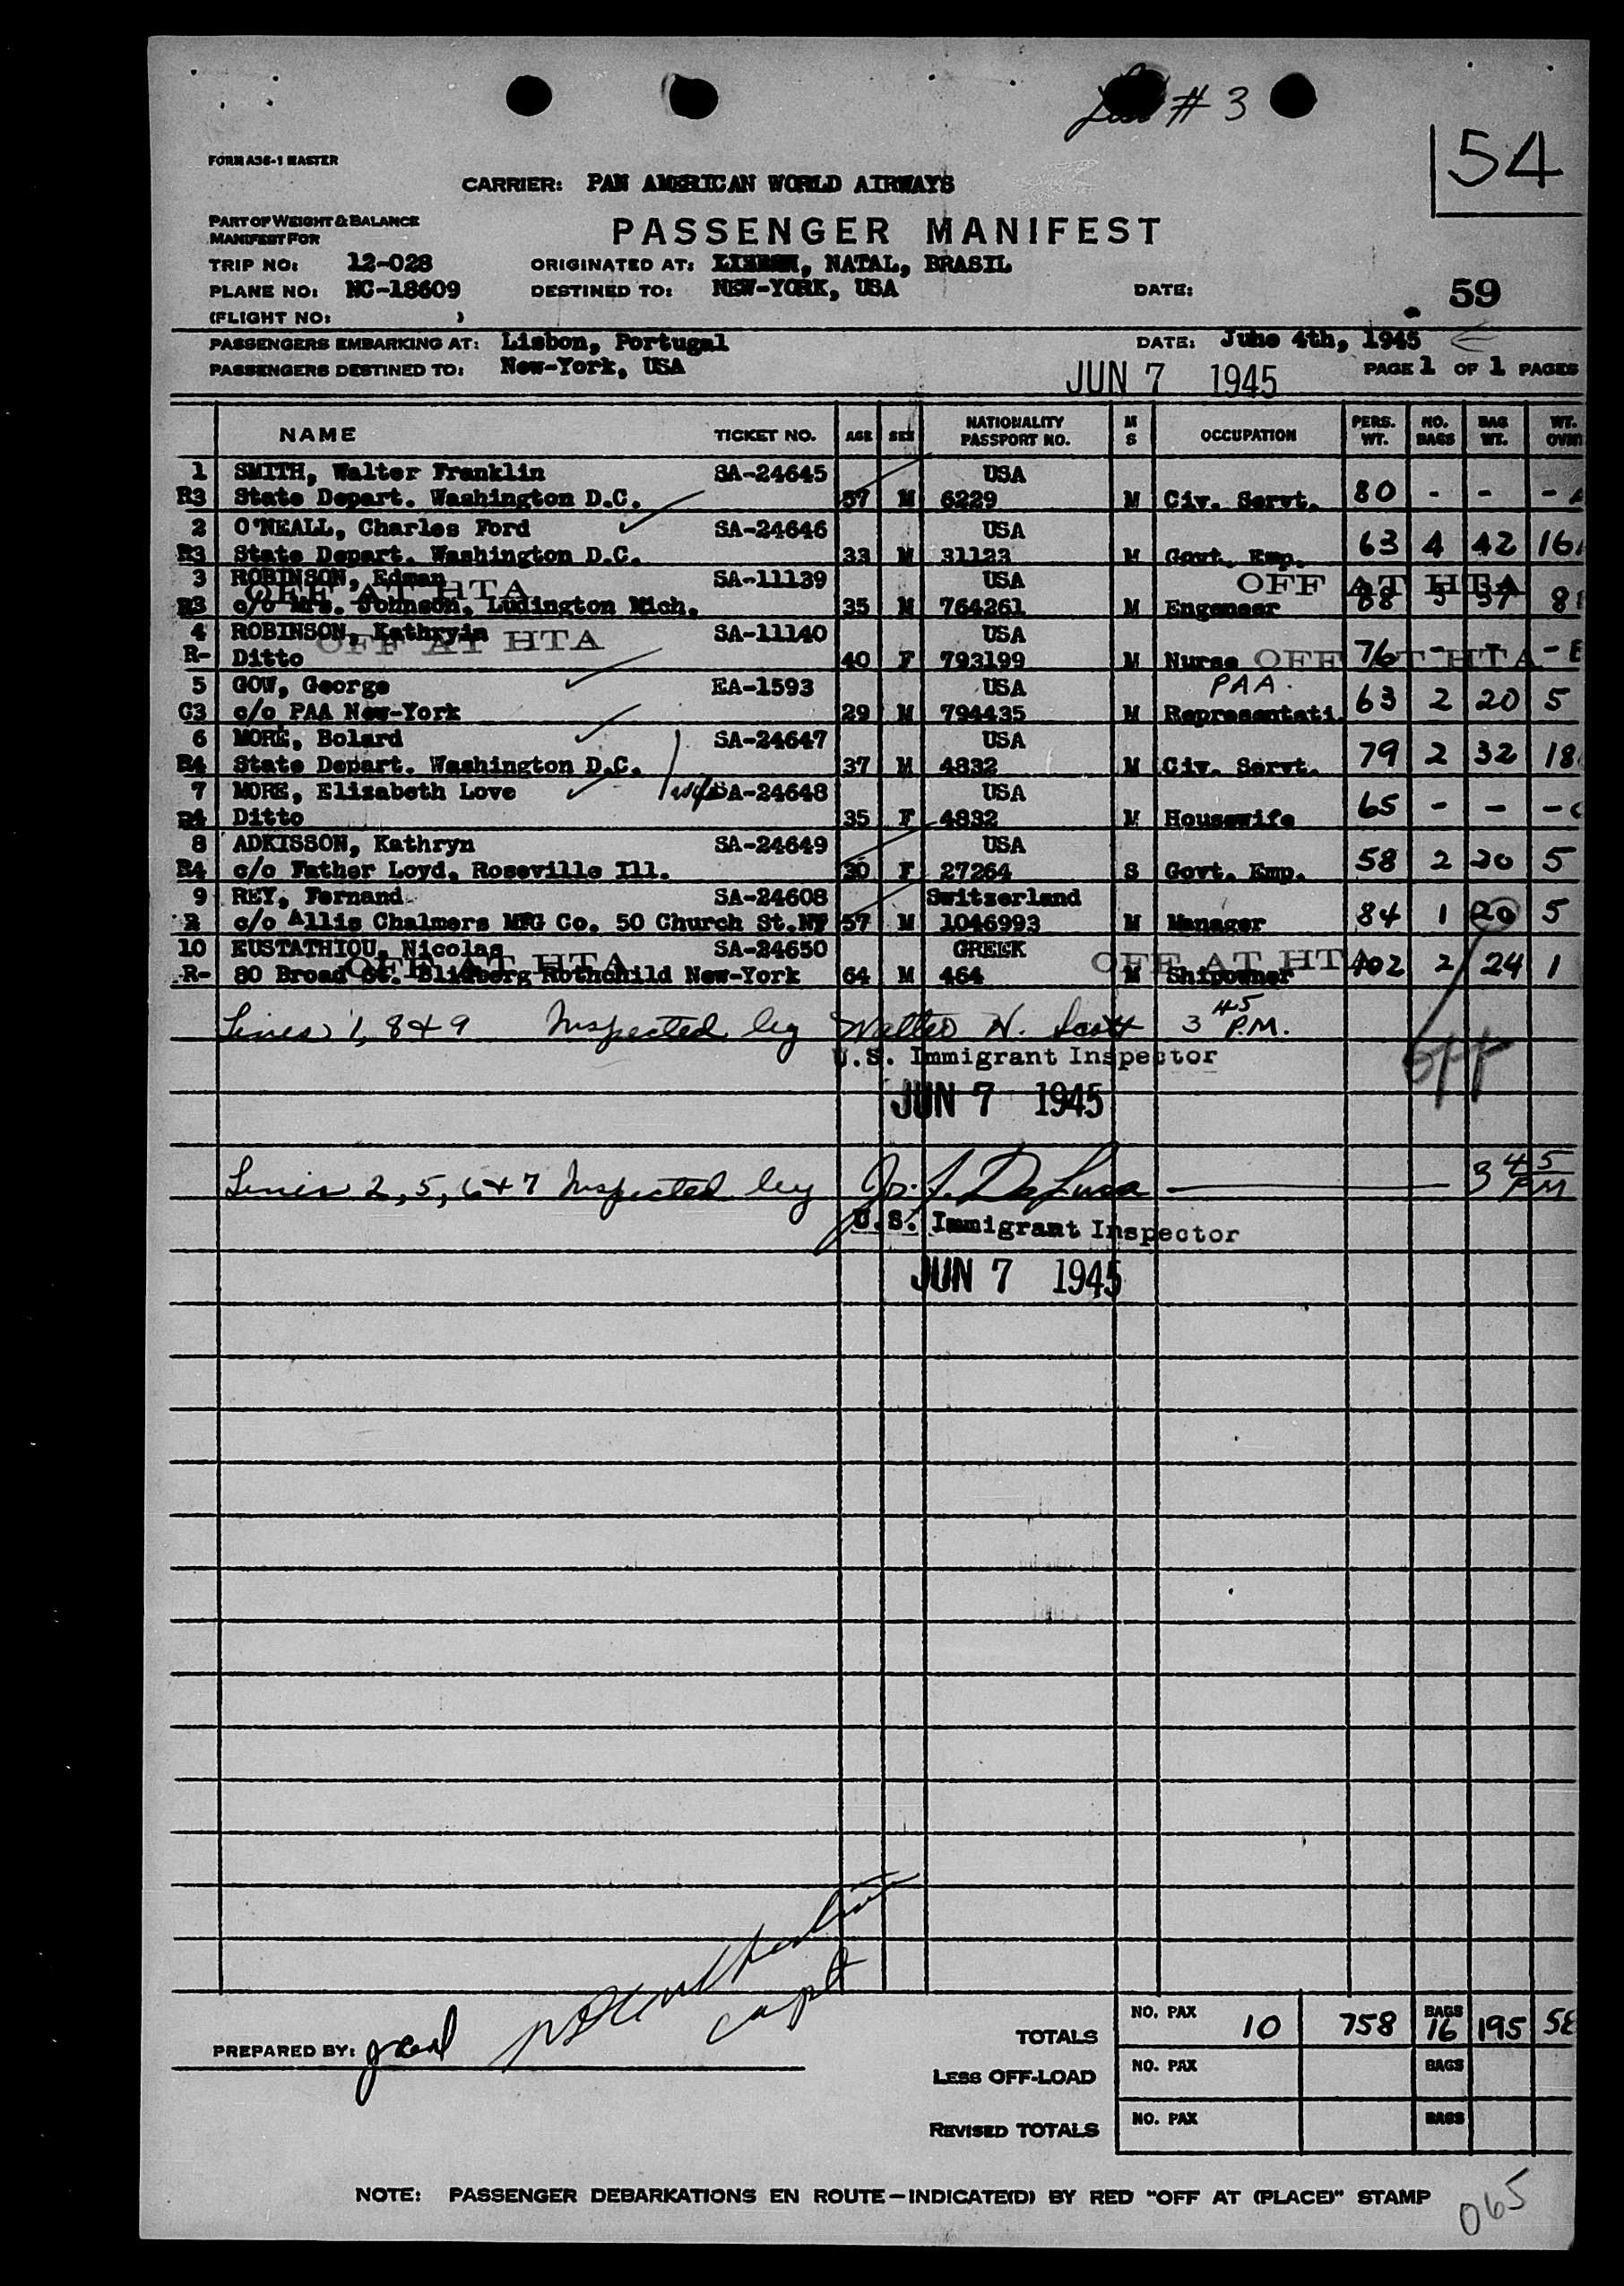 # 3
54
FORM A36-1 MASTER
CARRIER: PAN AMERICAN WORLD AIRWAYS
PART OF WEIGHT & BALANCE
MANIFEST FOR
PASSENGER MANIFEST
TRIP NO: 12-028 ORIGINATED AT: LISBON, NATAL, BRASIL
PLANE NO: NC-18609 DESTINED TO: NEW-YORK, USA DATE: 59
(FLIGHT NO: )
PASSENGERS EMBARKING AT: Lisbon, Portugal DATE: June 4th, 1945
PASSENGERS DESTINED TO: New-York, USA JUN 7 1945 PAGE 1 OF 1 PAGES
NAME TICKET NO. AGE SEX NATIONALITY PASSPORT NO. M S OCCUPATION PERS. WT. NO. BAGS BAG WT. WT.
1 SMITH, Walter Franklin SA-24645 USA
R3 State Depart. Washington D.C. 57 M 6229 M Civ. Servt. 80 - - -
2 O'NEALL, Charles Ford SA-24646 USA
R3 State Depart. Washington D.C. 33 M 31123 M Govt. Emp. 63 4 42 16
3 ROBINSON, Edman SA-11139 USA
OFF AT HTA OFF AT HTA
R3 c/o Mrs. Johnson, Ludington Mich. 35 M 764261 M Engeneer 88 3 37 8
4 ROBINSON, Kathryin SA-11140 USA
OFF AT HTA
R- Ditto 40 F 793199 M Nurse OFF AT HTA 76 - - -
5 GOW, George EA-1593 USA PAA.
C3 c/o PAA New-York 29 M 794435 M Representati. 63 2 20 5
6 MORE, Bolard SA-24647 USA
R4 State Depart. Washington D.C. 37 M 4832 M Civ. Servt. 79 2 32 18
7 MORE, Elizabeth Love wife SA-24648 USA
R4 Ditto 35 F 4832 M Housewife 65 - - -
8 ADKISSON, Kathryn SA-24649 USA
R4 c/o Father Loyd, Roseville Ill. 30 F 27264 S Govt. Emp. 58 2 20 5
9 REY, Fernand SA-24608 Switzerland
R c/o Allis Chalmers MFG Co. 50 Church St.NY 57 M 1046993 M Manager 84 1 20 5
10 EUSTATHIOU, Nicolas SA-24650 GREEK
OFF AT HTA OFF AT HTA
R- 80 Broad St. Blidberg Rothchild New-York 64 M 464 M Shipowner 102 2 24 1
Lines 1, 8 & 9 Inspected by Walter H. Scott 3 45 P.M.
U.S. Immigrant Inspector
off
JUN 7 1945
Lines 2, 5, 6 & 7 Inspected by Jos. S. DeLuca 3 45 PM
U.S. Immigrant Inspector
JUN 7 1945
capt
PREPARED BY:
TOTALS NO. PAX 10 758 BAGS 16 195
LESS OFF-LOAD NO. PAX BAGS
REVISED TOTALS NO. PAX BAGS
NOTE: PASSENGER DEBARKATIONS EN ROUTE—INDICATE(D) BY RED "OFF AT (PLACE)" STAMP
065